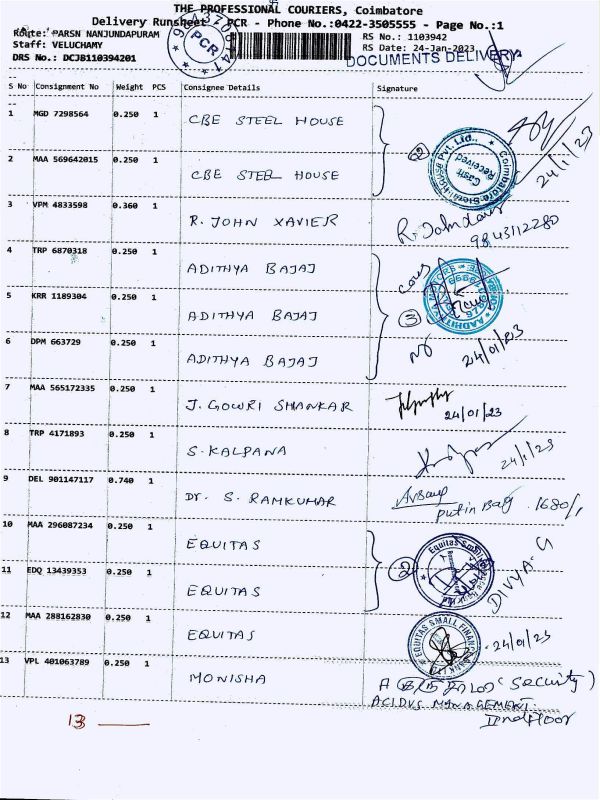 THE PROFESSIONAL COURIERS, Coimbatore
Delivery Runsheet - PCR - Phone No.:0422-3505555 - Page No.:1
Route: PARSN NANJUNDAPURAM
RS No.: 1103942
Staff: VELUCHAMY
RS Date: 24-Jan-2023
DRS No.: DCJB110394201
PCR
DOCUMENTS DELIVERY
S No Consignment No Weight PCS Consignee Details Signature
1 MGD 7298564 0.250 1 CBE STEEL HOUSE
24/1/23
Coimbatore Steel House Pvt. Ltd.,
Received
2 MAA 569642015 0.250 1 CBE STEEL HOUSE
3 VPM 4833598 0.360 1 R. JOHN XAVIER
9843112280
4 TRP 6870318 0.250 1 ADITHYA BAJAJ
5 KRR 1189304 0.250 1 ADITHYA BAJAJ
3
6 DPM 663729 0.250 1 ADITHYA BAJAJ
24/01/23
7 MAA 565172335 0.250 1 J. GOWRI SHANKAR
24/01/23
8 TRP 4171893 0.250 1 S. KALPANA
24/1/23
9 DEL 901147117 0.740 1 Dr. S. RAMKUMAR
10 MAA 296087234 0.250 1 EQUITAS
2
DIVYA. G
11 EDQ 13439353 0.250 1 EQUITAS
12 MAA 288162830 0.250 1 EQUITAS
EQUITAS SMALL FINANCE
24/01/23
13 VPL 401063789 0.250 1 MONISHA
(Security)
MANAGEMENT
IInd Floor
13